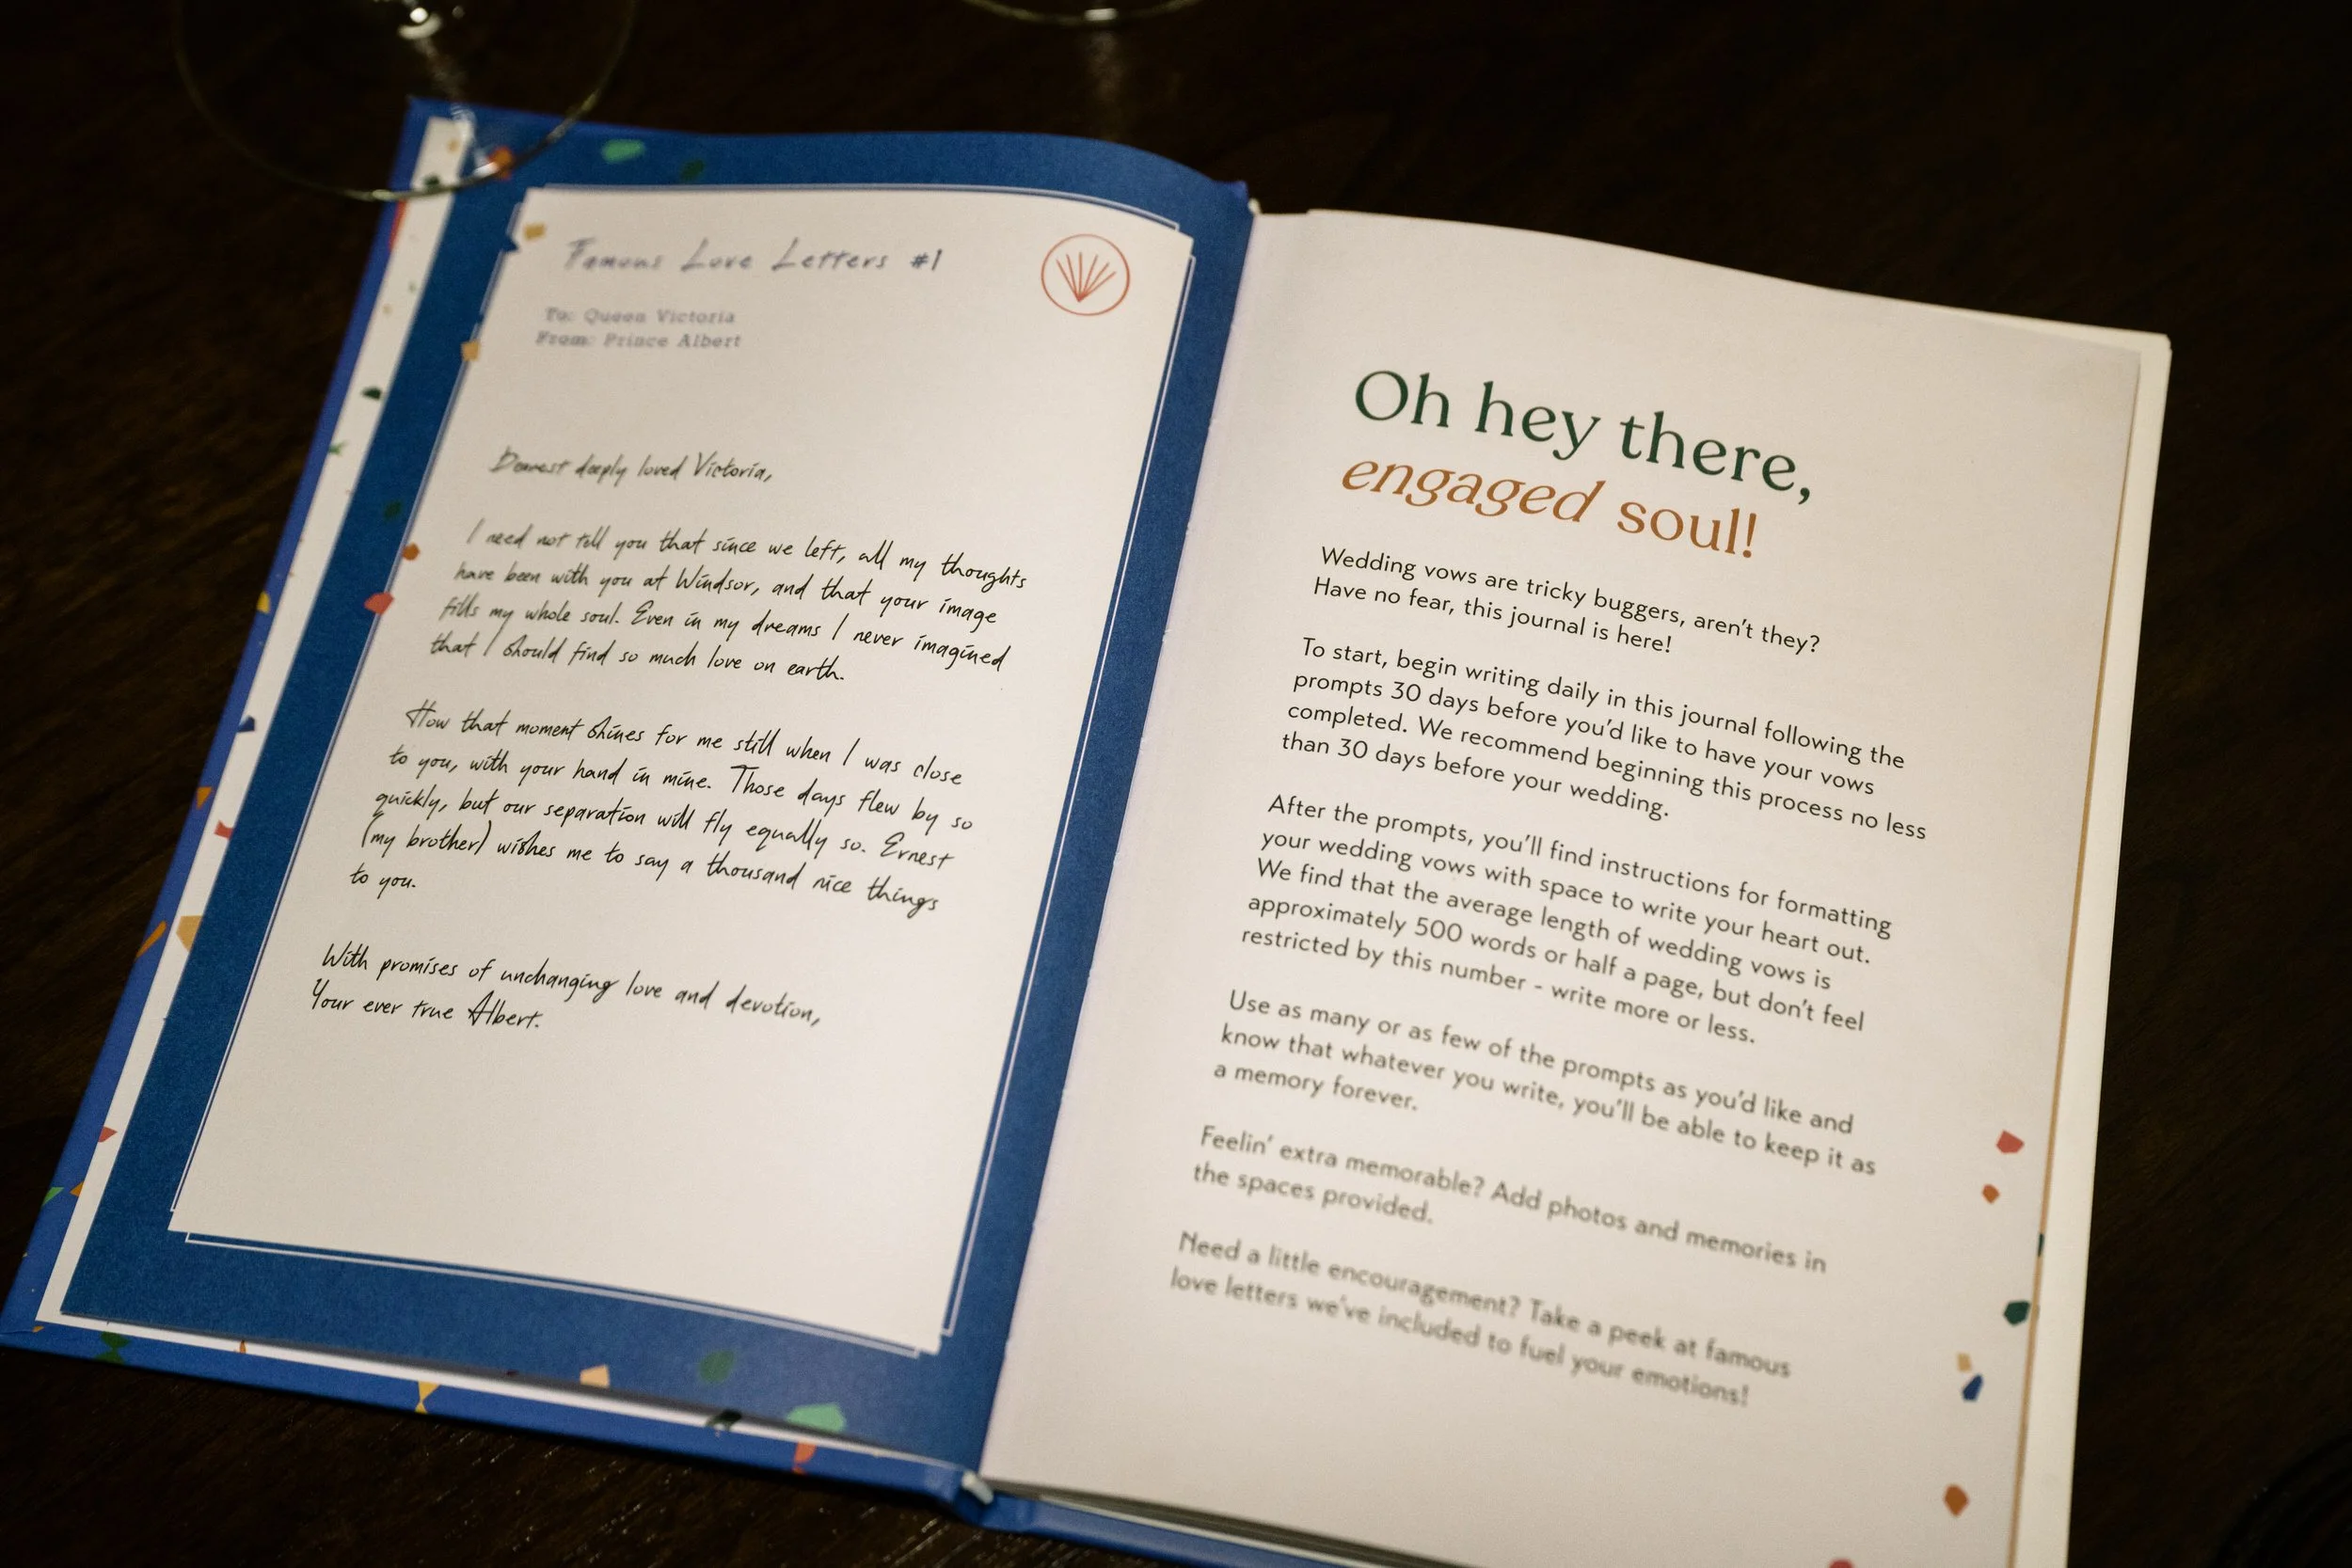 Famous Love Letters #1
To: Queen Victoria
From: Prince Albert
Dearest deeply loved Victoria,
I need not tell you that since we left, all my thoughts
have been with you at Windsor, and that your image
fills my whole soul. Even in my dreams I never imagined
that I should find so much love on earth.
How that moment shines for me still when I was close
to you, with your hand in mine. Those days flew by so
quickly, but our separation will fly equally so. Ernest
(my brother) wishes me to say a thousand nice things
to you.
With promises of unchanging love and devotion,
Your ever true Albert.
Oh hey there,
engaged soul!
Wedding vows are tricky buggers, aren't they?
Have no fear, this journal is here!
To start, begin writing daily in this journal following the
prompts 30 days before you'd like to have your vows
completed. We recommend beginning this process no less
than 30 days before your wedding.
After the prompts, you'll find instructions for formatting
your wedding vows with space to write your heart out.
We find that the average length of wedding vows is
approximately 500 words or half a page, but don't feel
restricted by this number - write more or less.
Use as many or as few of the prompts as you'd like and
know that whatever you write, you'll be able to keep it as
a memory forever.
Feelin' extra memorable? Add photos and memories in
the spaces provided.
Need a little encouragement? Take a peek at famous
love letters we've included to fuel your emotions!